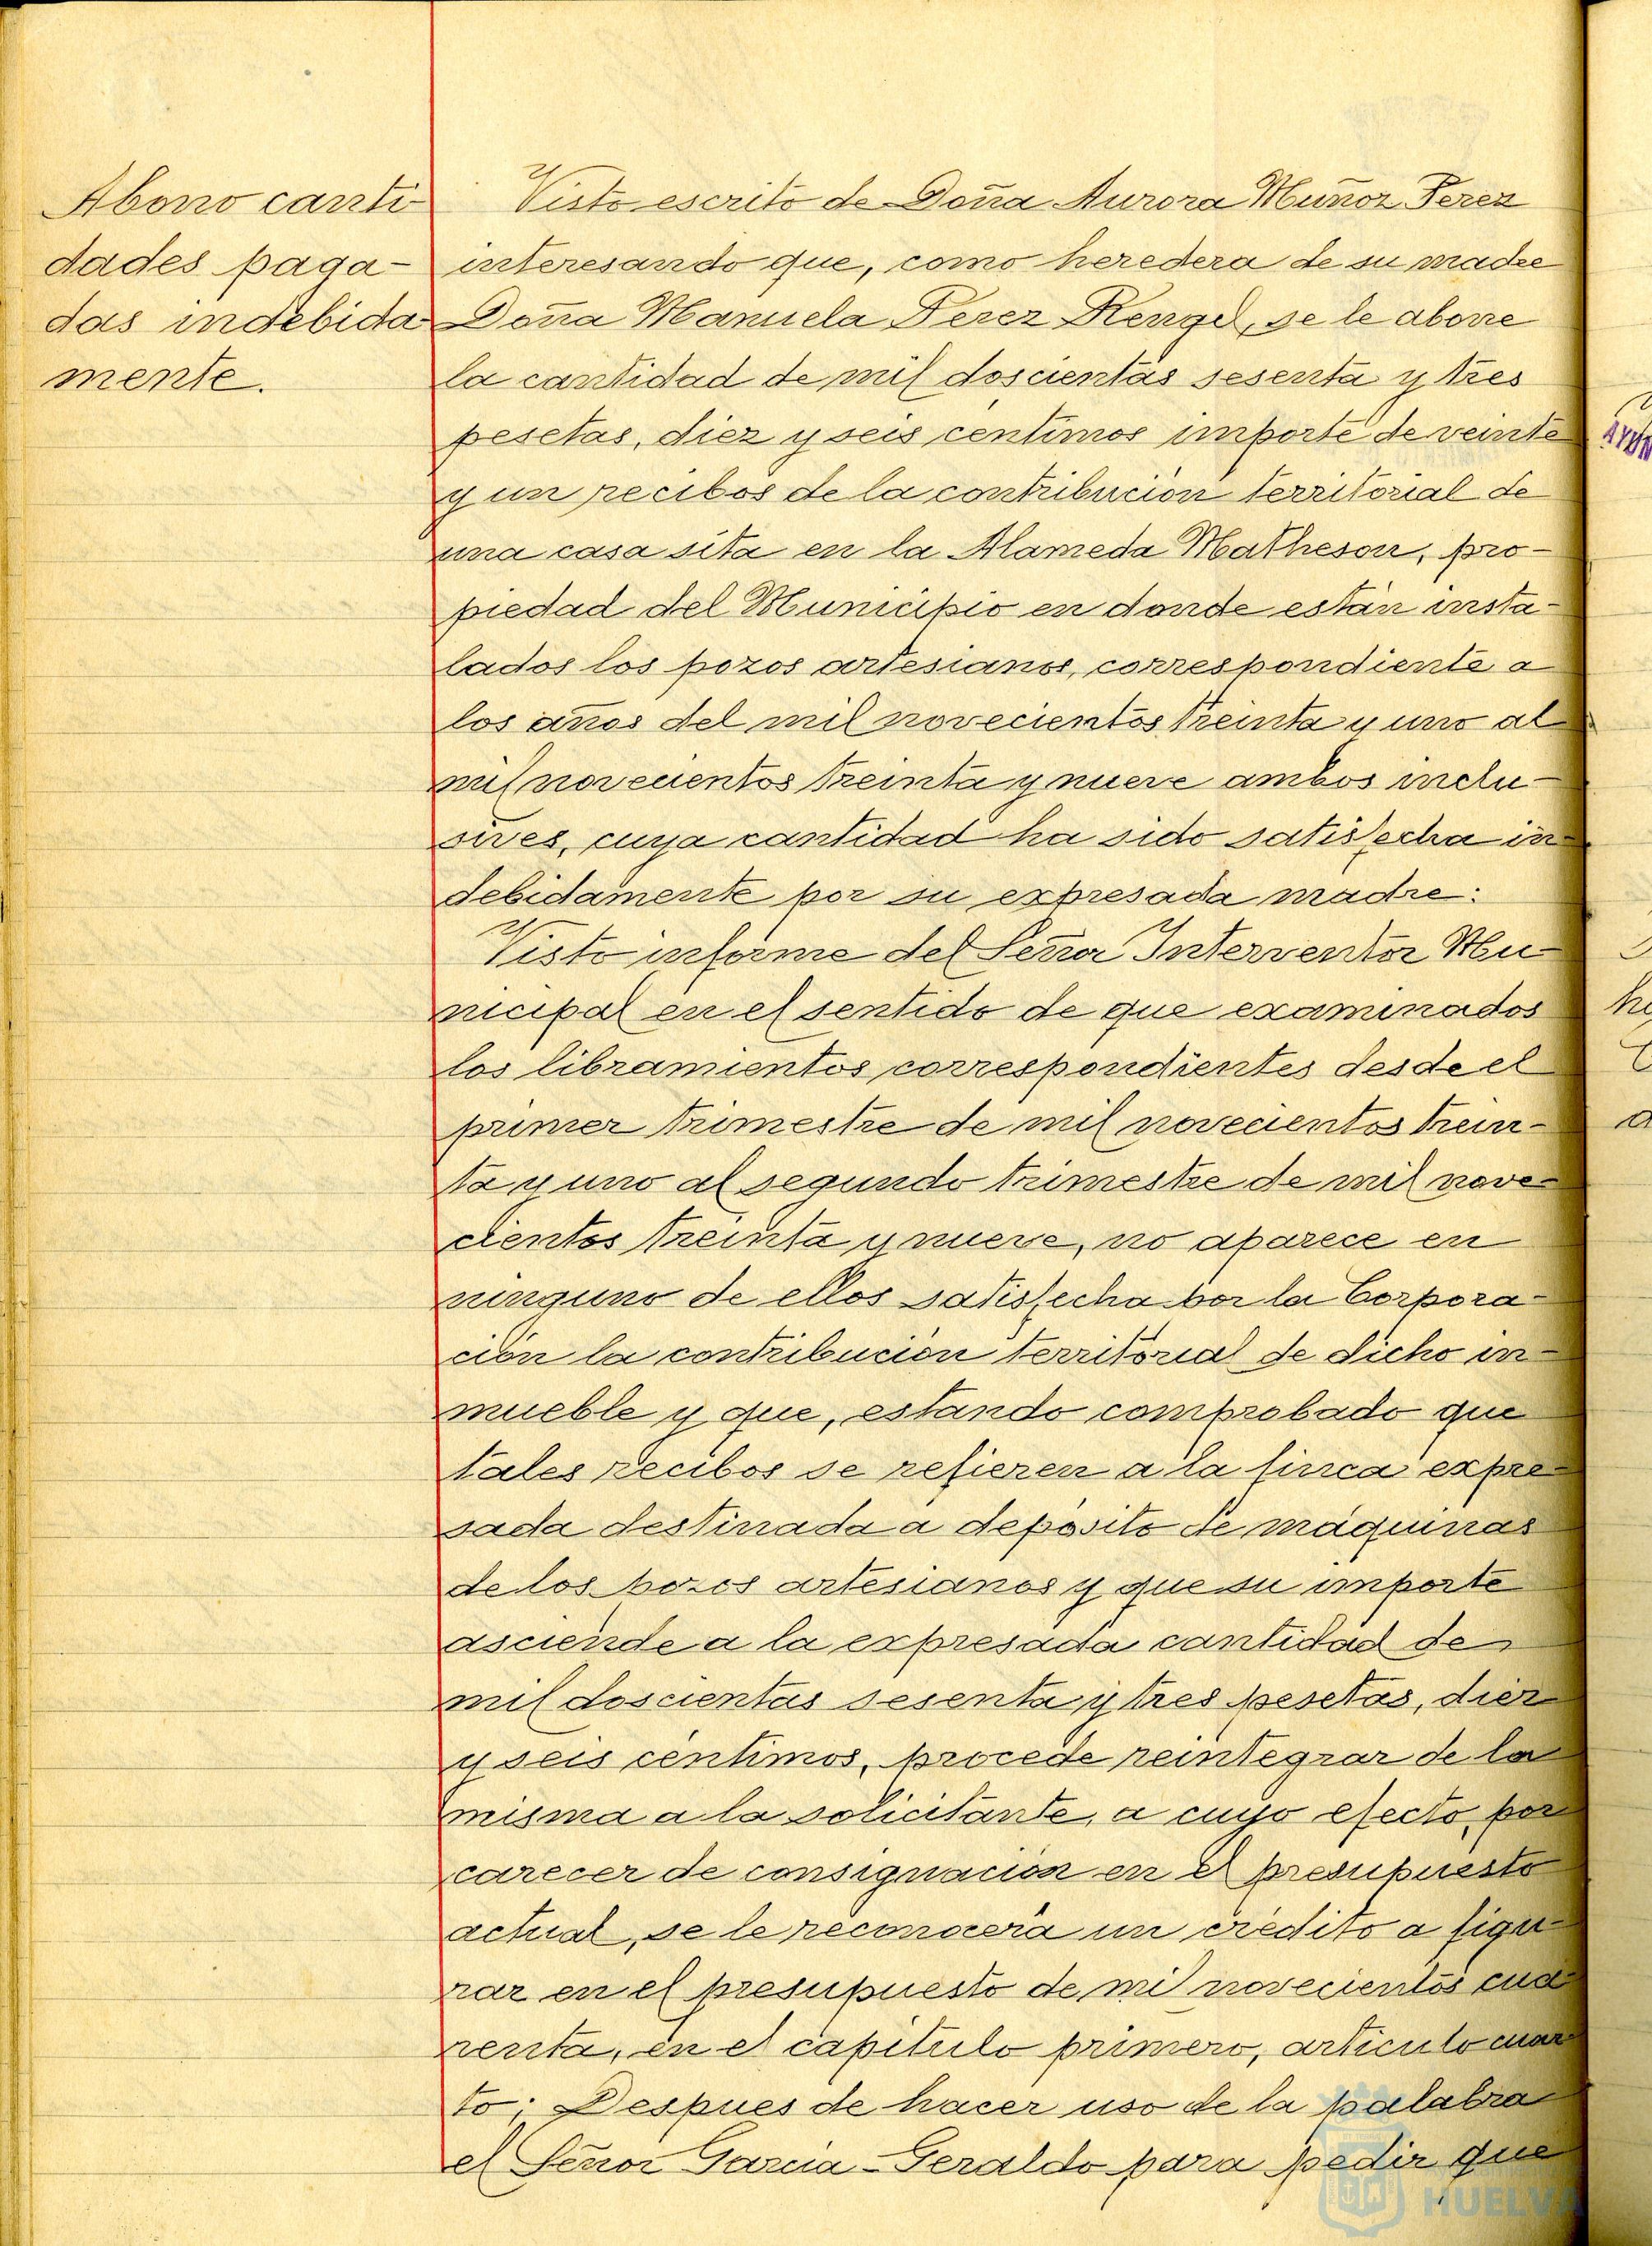 Abono canti-
dades paga-
das indebida
mente.
Visto escrito de Doña Aurora Muñoz Perez
interesando que, como heredera de su madre
Doña Manuela Perez Rengel, se le abone
la cantidad de mil doscientas sesenta y tres
pesetas, diez y seis centimos importe de veinte
y un recibos de la contribución territorial de
una casa sita en la Alameda Matheson, pro-
piedad del Municipio en donde están insta-
lados los pozos artesianos, correspondiente a
los años del mil novecientos treinta y uno al
mil novecientos treinta y nueve ambos inclu-
sives, cuya cantidad ha sido satisfecha in-
debidamente por su expresada madre:
Visto informe del Señor Interventor Mu-
nicipal en el sentido de que examinados
los libramientos correspondientes desde el
primer trimestre de mil novecientos trein-
ta y uno al segundo trimestre de mil nove-
cientos treinta y nueve, no aparece en
ninguno de ellos satisfecha por la Corpora-
ción la contribución territorial de dicho in-
mueble y que, estando comprobado que
tales recibos se refieren a la finca expre-
sada destinada a depósito de máquinas
de los pozos artesianos y que su importe
asciende a la expresada cantidad de
mil doscientas sesenta y tres pesetas, diez
y seis centimos, procede reintegrar de la
misma a la solicitante, a cuyo efecto, por
carecer de consignación en el presupuesto
actual, se le reconocerá un crédito a figu-
rar en el presupuesto de mil novecientos cua
renta, en el capitulo primero, articulo cuar
to; Despues de hacer uso de la palabra
el Señor Garcia-Geraldo para pedir que
HUELVA